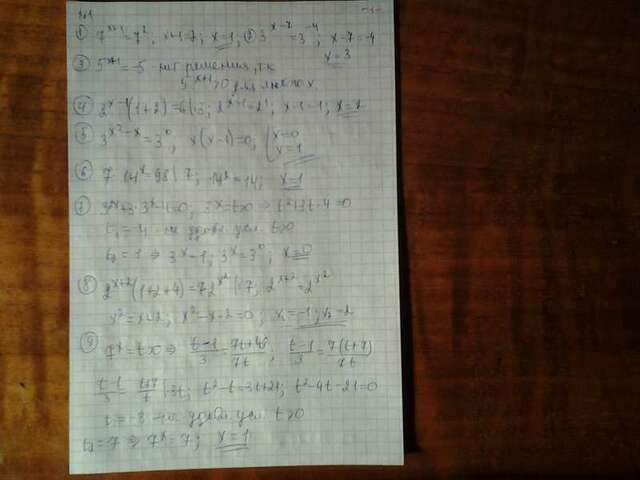 №1
① 7^{x+1}=7^2, x+1=2; x=1, ② 3^{x-7}=3^{-4}; x-7=-4
x=3
③ 5^{x+1}=-5 нет решения, т.к
5^{x+1}>0 для любого x
④ (1+2)=6|:3; 2^{x-1}=2^1; x-1=1; x=2
⑤ 3^{x^2-x}=3^0, x(x-1)=0, [x=0
x=1
⑥ 7·14^x=98|:7; 14^x=14; x=1
⑦ 9^x+3·3^x-4=0; 3^x=t>0 ⇒ t^2+3t-4=0
t₁=-4 не удовл. усл. t>0
t₂=1 ⇒ 3^x=1; 3^x=3^0; x=0
⑧ 2^{x+2}(1+2+4)=7·2^{x^2}|:7; 2^{x+2}=2^{x^2}
x^2=x+2; x^2-x-2=0; x₁=-1; x₂=2
⑨ 7^x=t>0 ⇒ (t-1)/3=(7t+49)/7t; (t-1)/3=7(t+7)/7t
(t-1)/3=(t+7)/t |·3t; t^2-t=3t+21; t^2-4t-21=0
t₁=-3 не удовл. усл. t>0
t₂=7 ⇒ 7^x=7; x=1